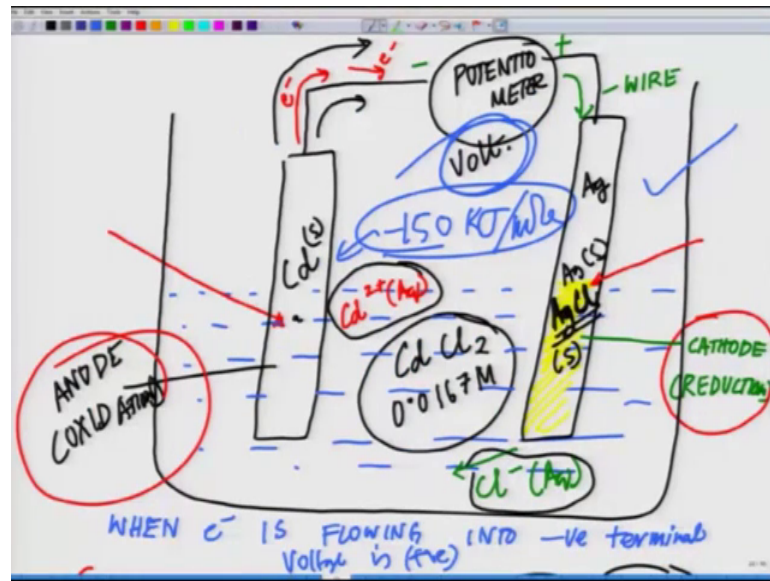 e⁻
e⁻
-
+
POTENTIO
METER
WIRE
Volt.
Ag
-150 KJ/mole
Cd(s)
Ag(s)
AgCl
(s)
Cd²⁺(Aq)
CdCl₂
0.0167M
ANODE
(OXIDATION)
CATHODE
(REDUCTION)
Cl⁻(Aq)
WHEN e⁻ IS FLOWING INTO -ve terminal
Voltage is (+ve)